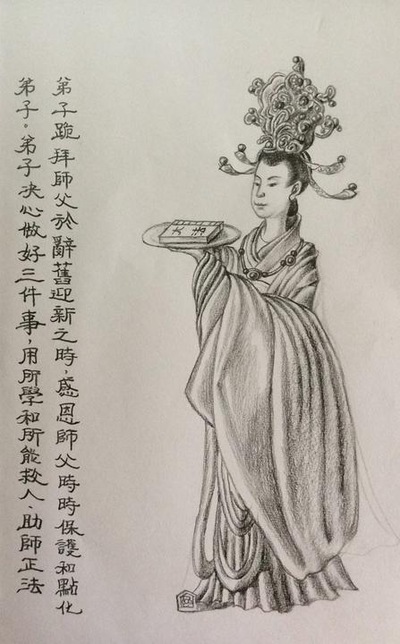 弟子跪拜師父於辭舊迎新之時，感恩師父時時保護和點化
弟子。弟子决心做好三件事，用所學和所能救人、助師正法